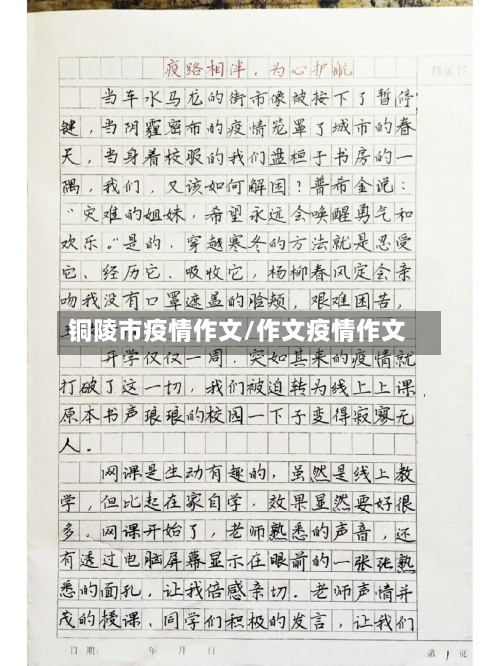 疫路相伴，为心护航
当车水马龙的街市像被按下了暂停
键，当阴霾密布的疫情笼罩了城市的春
天，当身着校服的我们盘桓于书房的一
隅，我们，又该如何解困？普希金说：
“灾难的姐妹，希望永远会唤醒勇气和
欢乐。”是的，穿越寒冬的方法就是忍受
它、经历它、吸收它，杨柳春风定会亲
吻我没有口罩遮盖的脸颊，艰难困苦，
铜陵市疫情作文/作文疫情作文
开学仅仅一周，突如其来的疫情就
打破了这一切，我们被迫转为线上上课，
原本书声琅琅的校园一下子变得寂寥无
人。
网课是生动有趣的，虽然是线上教
学，但比起在家自学，效果显然要好很
多。网课开始了，老师熟悉的声音，还
有透过电脑屏幕显示在眼前的一张张熟
悉的面孔，让我倍感亲切。老师声情并
茂的授课、同学们积极的发言，让我们
日期： 年 月 日 第 1 页